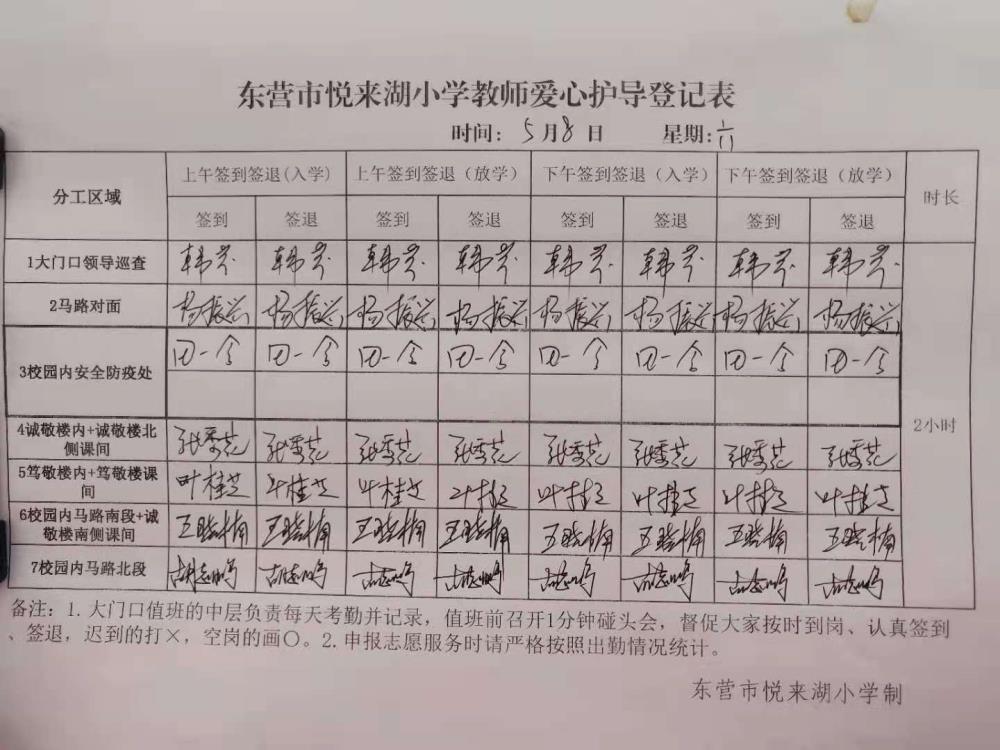 东营市悦来湖小学教师爱心护导登记表
时间：5月8日 星期：六
分工区域 上午签到签退(入学) 上午签到签退（放学） 下午签到签退（入学） 下午签到签退（放学） 时长
签到 签退 签到 签退 签到 签退 签到 签退
1大门口领导巡查 韩芳 韩芳 韩芳 韩芳 韩芳 韩芳 韩芳 韩芳
2马路对面 杨振兴 杨振兴 杨振兴 杨振兴 杨振兴 杨振兴 杨振兴 杨振兴
3校园内安全防疫处 田一令 田一令 田一令 田一令 田一令 田一令 田一令 田一令
2小时
4诚敬楼内+诚敬楼北
侧课间 张秀芝 张秀芝 张秀芝 张秀芝 张秀芝 张秀芝 张秀芝 张秀芝
5笃敬楼内+笃敬楼课
间 叶桂芝 叶桂芝 叶桂芝 叶桂芝 叶桂芝 叶桂芝 叶桂芝 叶桂芝
6校园内马路南段+诚
敬楼南侧课间 王晓楠 王晓楠 王晓楠 王晓楠 王晓楠 王晓楠 王晓楠 王晓楠
7校园内马路北段 胡志鸣 胡志鸣 胡志鸣 胡志鸣 胡志鸣 胡志鸣 胡志鸣 胡志鸣
备注：1.大门口值班的中层负责每天考勤并记录，值班前召开1分钟碰头会，督促大家按时到岗、认真签到
、签退，迟到的打×，空岗的画○。2.申报志愿服务时请严格按照出勤情况统计。
东营市悦来湖小学制